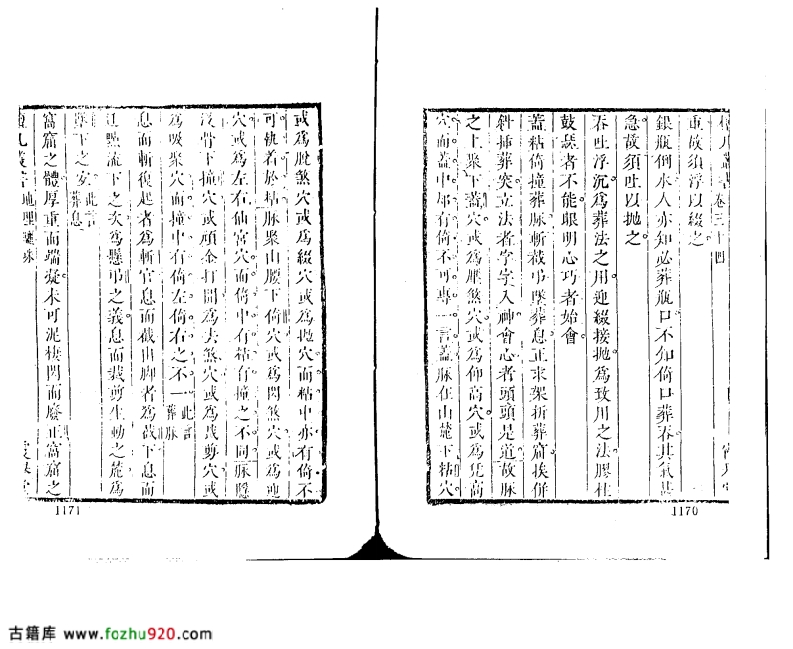 重故須浮以綴之
銀瓶倒水人亦知必葬瓶口不知倚口葬吞其氣甚
急故須吐以拋之
吞吐浮沉爲葬法之用迎綴接拋爲致用之法膠柱
鼓瑟者不能眼明心巧者始會
蓋粘倚撞葬脉斬截弔墜葬息正求架折葬窟挨併
斜插葬突立法者字字入神會心者頭頭是道故脉
之上聚下蓋穴或爲壓煞穴或爲仰高穴或爲凭高
穴而蓋中却有倚不可專一言蓋脉在山麓下粘穴
1170
或爲脫煞穴或爲綴穴或爲拋穴而粘中亦有倚不
可執着於粘脉聚山腰下倚穴或爲閃煞穴或爲迎
穴或爲左右仙宮穴而倚中有粘有撞之不同脉隱
没骨下撞穴或頑金打開爲去煞穴或爲裁剪穴或
爲吸聚穴而撞中有倚左倚右之不一此言葬脉
息而斬復起者爲斬官息而截山脚者爲截下息而
流下之次爲懸弔之義息而裁剪生動之麓爲
墜下之安此言葬息
窩窟之體厚重而端凝未可泥棲閃而廢正窩窟之
1171
古籍库 www.fozhu920.com